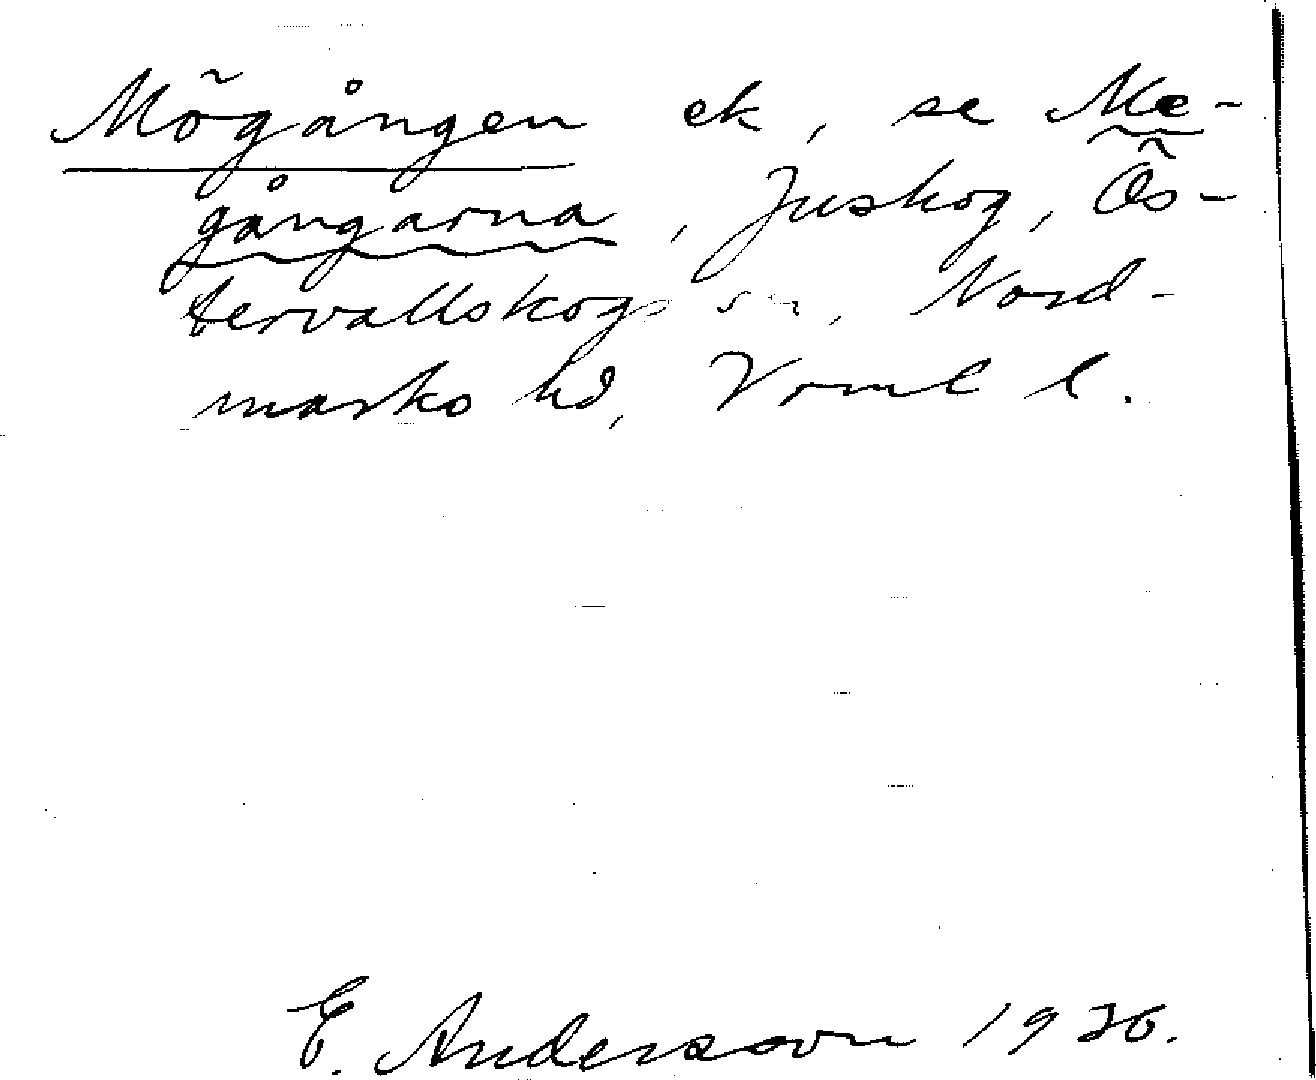 Mögången ek, se Me-
gångarna, Juskog, Ös-
tervallskogs sn, Nord-
marks hd, Vrml l.
E. Andersson 1936.